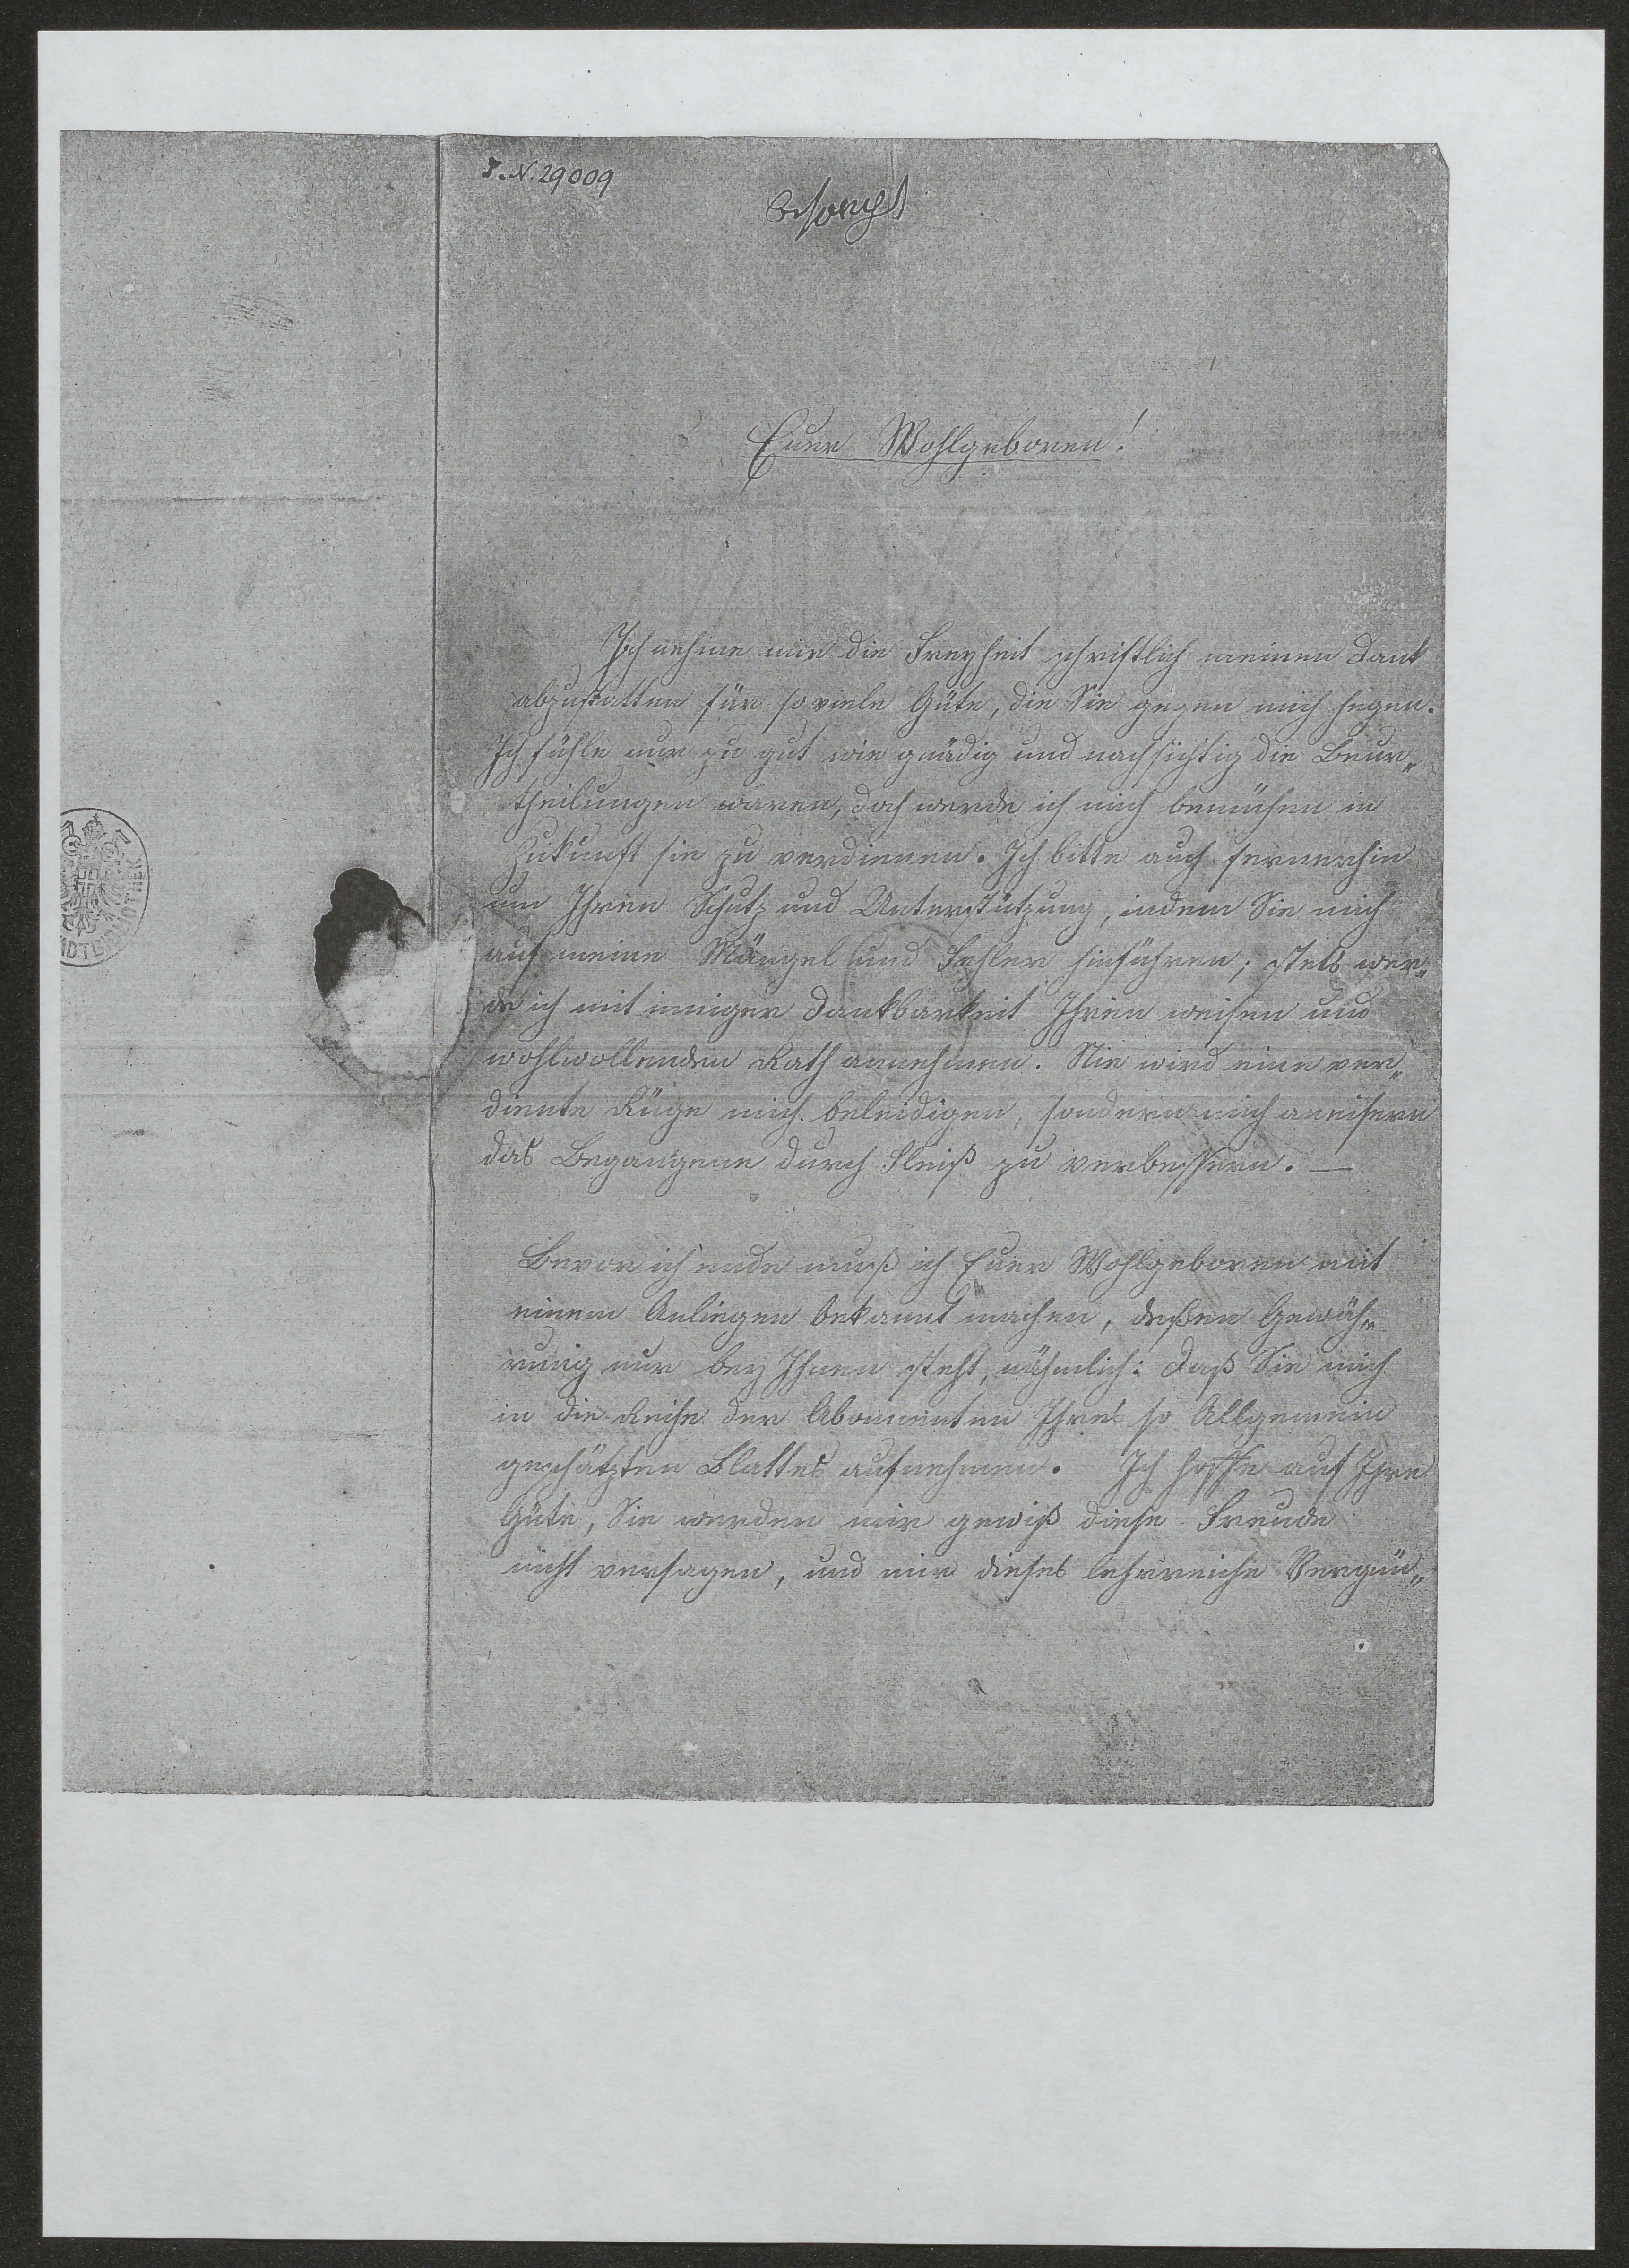 I. N. 29009
besorgt
Euer Wohlgeboren!
Ich nehme mir die Freyheit schriftlich meinen Dank
abzustatten für so viele Güte, die Sie gegen mich hegen.
Ich fühle nur zu gut wie gnädig und nachsichtig die Beur„
theilungen waren, doch werde ich mich bemühen in
Zukunft sie zu verdienen. Ich bitte auch fernerhin
um Ihren Schutz und Unterstützung, indem Sie mich
auf meine Mängel und Fehler hinführen; stets wer„
de ich mit inniger Dankbarkeit Ihren weisen und
wohlwollenden Rath annehmen. Nie wird eine ver„
diente Rüge mich beleidigen, sondern mich aneifern
das Begangene durch Fleiß zu verbessern. —
Bevor ich ende muß ich Euer Wohlgeboren mit
einem Anliegen bekannt machen, deßen Gewäh„
rung nur bey Ihnen steht, nähmlich: daß Sie mich
in die Reihe der Abonnenten Ihres so Allgemein
geschätzten Blattes aufnehmen. Ich hoffe auf Ihre
Güte, Sie werden mir gewiß diese Freude
nicht versagen, und mir dieses lehrreiche Vergnü„